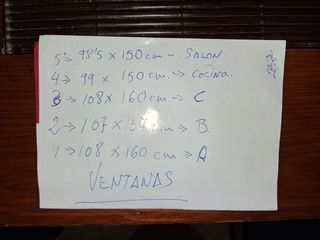 5ª 98'5 x 150 cm - SALON.
4 → 99 x 150 cm. → COCINA.
3 → 108 x 160 cm → C
2 → 107 x 157 cm → B.
1 → 108 x 160 cm → A
VENTANAS